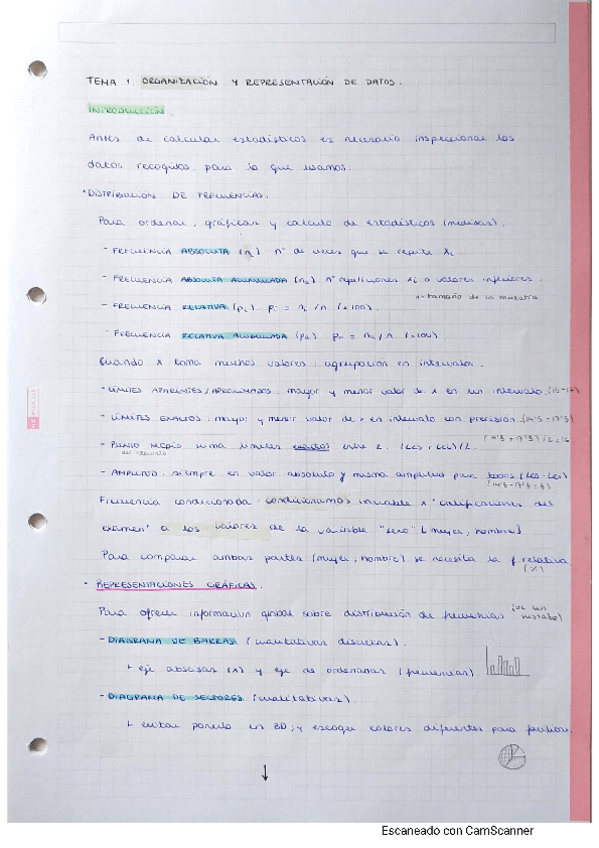 TEMA 1. ORGANIZACIÓN Y REPRESENTACIÓN DE DATOS.
INTRODUCCIÓN.
Antes de calcular estadísticos es necesario inspeccionar los
datos recogidos para lo que usamos.
* DISTRIBUCIÓN DE FRECUENCIAS.
Para ordenar, gráficas y cálculo de estadísticos (medidas).
- FRECUENCIA ABSOLUTA (ni) nº de veces que se repite Xi
- FRECUENCIA ABSOLUTA ACUMULADA (na) nº repeticiones Xi o valores inferiores.
n = tamaño de la muestra
- FRECUENCIA RELATIVA (pi) pi = ni / n (x100)
- FRECUENCIA RELATIVA ACUMULADA (pa) pa = na / n (x100)
Cuando X toma muchos valores: agrupación en intervalos.
- LÍMITES APARENTES/APROXIMADOS: mayor y menor valor de X en un intervalo. (15-17)
- LÍMITES EXACTOS: mayor y menor valor de x en intervalo con precisión (14'5 - 17'5)
- PUNTO MEDIO suma límites exactos entre 2. (Les + Lei)/2 (14'5 + 17'5)/2 = 16
del intervalo
- AMPLITUD: siempre en valor absoluto y misma amplitud para todos (Les - Lei)
Frecuencia condicionada: condicionamos la variable x "calificaciones del
examen" a los valores de la variable "sexo" [mujer, hombre].
Para comparar ambas partes (mujer, hombre) se necesita la f. relativa
(%)
* REPRESENTACIONES GRÁFICAS.
Para ofrecer información global sobre distribución de frecuencias (de un
vistazo)
- DIAGRAMA DE BARRAS (cuantitativas discretas).
↳ eje abscisas (X) y eje de ordenadas (frecuencias).
- DIAGRAMA DE SECTORES (cualitativas).
↳ evitar ponerlo en 3D; y escoger colores diferentes para
↓
Escaneado con CamScanner